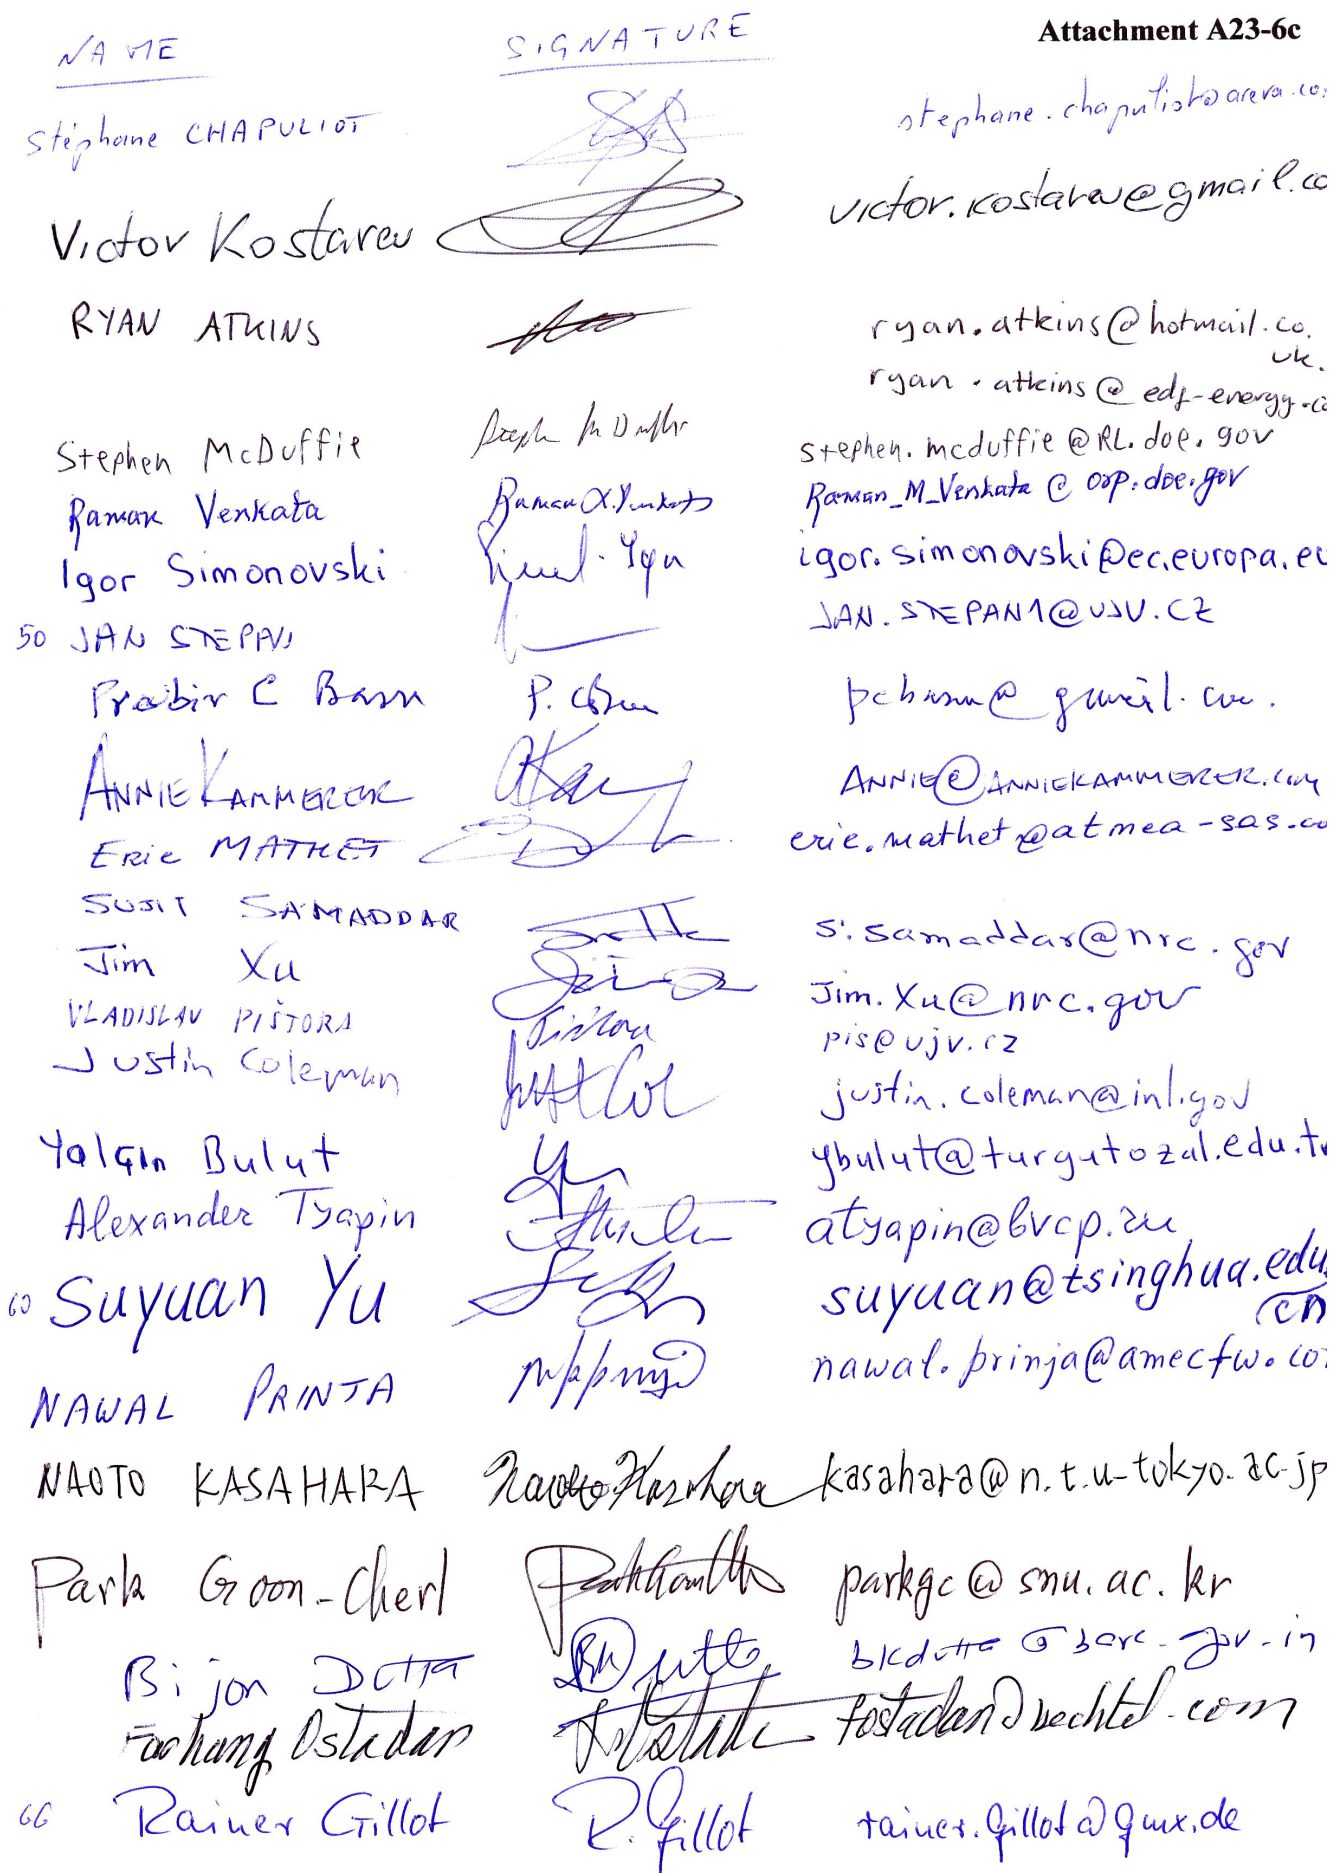 Attachment A23-6c
NAME SIGNATURE
Stéphane CHAPULIOT stephane.chapuliot@areva.co
Victor Kostarev victor.kostarev@gmail.co
RYAN ATKINS ryan.atkins@hotmail.co.
uk.
ryan.atkins@edf-energy.co
Stephen McDuffie stephen.mcduffie@RL.doe.gov
Raman Venkata Raman_M_Venkata@orp.doe.gov
Igor Simonovski igor.simonovski@ec.europa.eu
50 JAN STEPAN JAN.STEPAN1@UJV.CZ
Prabir C Basu P. Basu pcbasu@gmail.com.
ANNIE KAMMERER ANNIE@ANNIEKAMMERER.com
Eric MATHET eric.mathet@atmea-sas.co
SUJIT SAMADDAR s.samaddar@nrc.gov
Jim Xu Jim.Xu@nrc.gov
VLADISLAV PIŠTORA Pištora pis@ujv.cz
Justin Coleman Just Col justin.coleman@inl.gov
Yalçın Bulut ybulut@turgutozal.edu.tr
Alexander Tyapin atyapin@bvcp.ru
60 Suyuan Yu suyuan@tsinghua.edu.
cn
NAWAL PRINJA nawal.prinja@amecfw.com
NAOTO KASAHARA Naoto Kasahara kasahara@n.t.u-tokyo.ac.jp
Park Goon-Cherl parkgc@snu.ac.kr
Bijon Dutta BKDutta bkdutta@barc.gov.in
Farhang Ostadan fostadan@bechtel.com
66 Rainer Gillot R. Gillot rainer.gillot@gmx.de